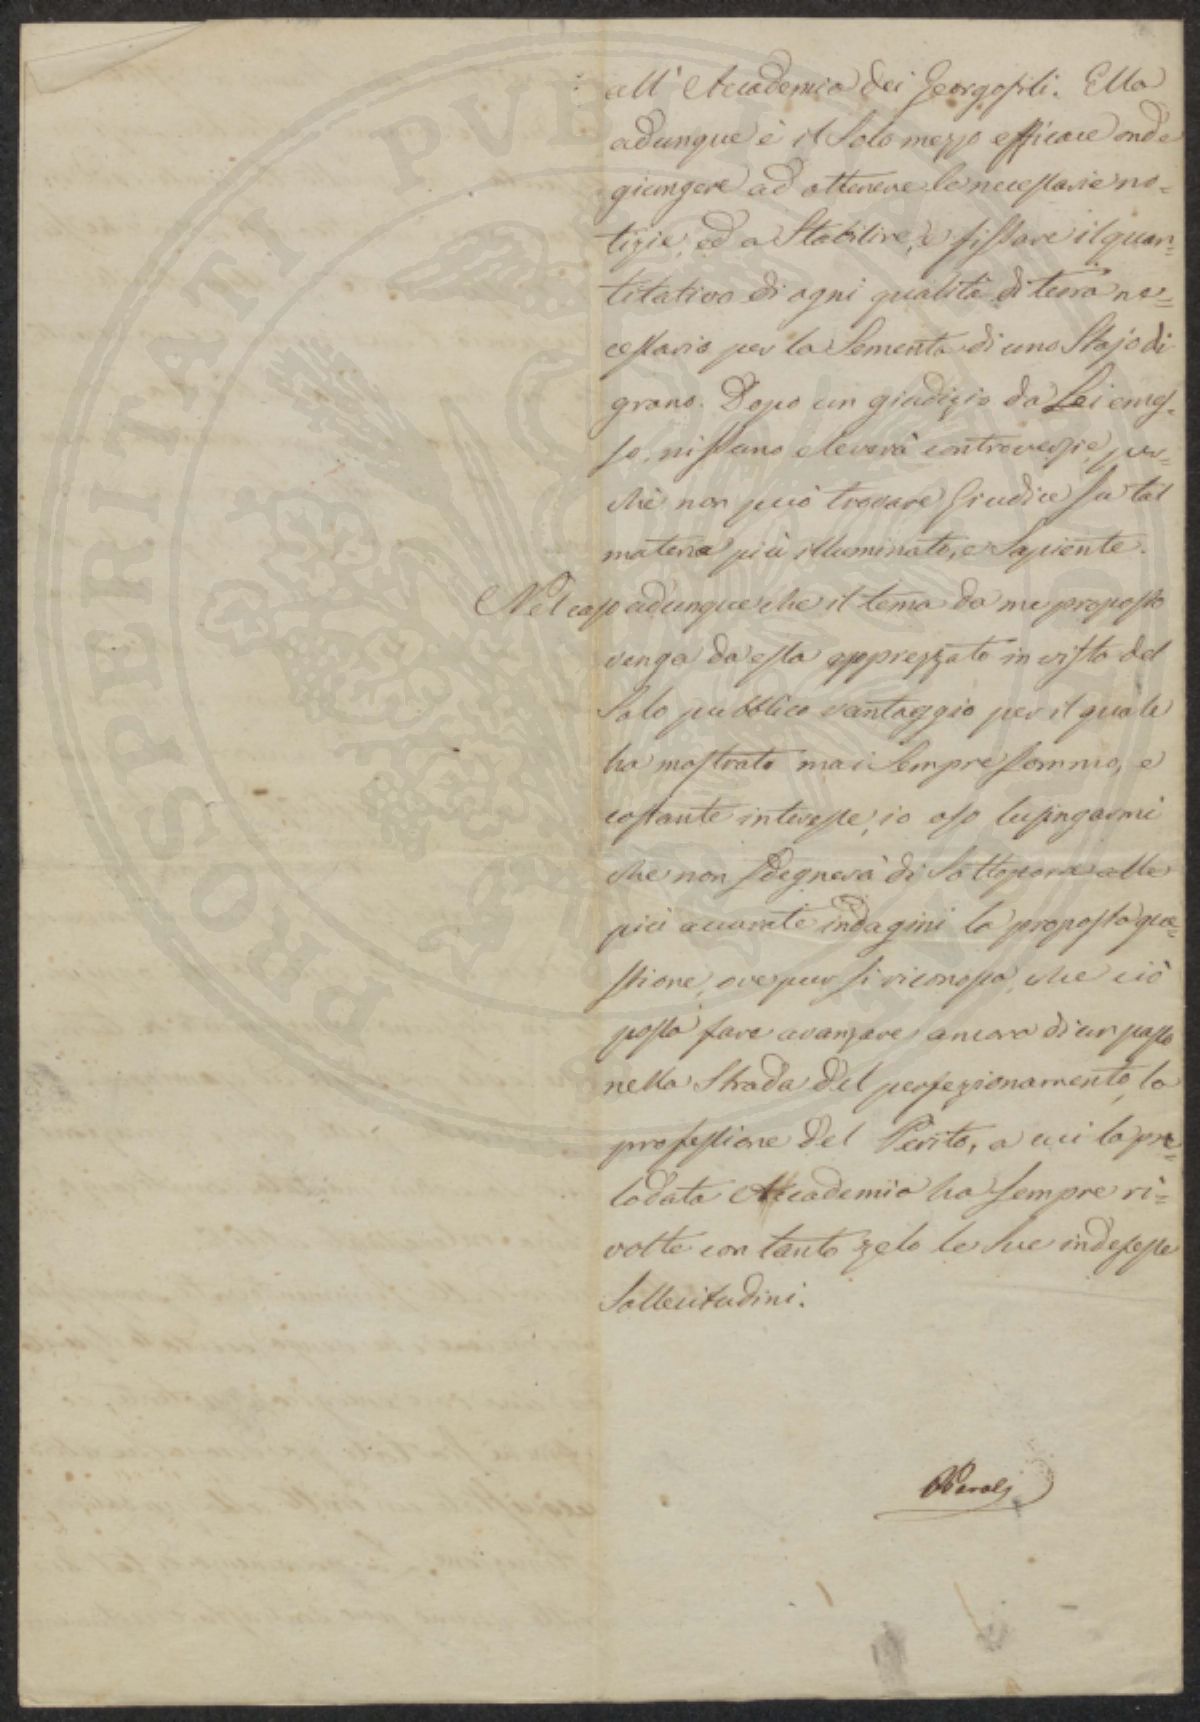 all' Accademia dei Georgofili. Ella
adunque è il Solo mezzo efficace onde
giungere ad ottenere le necessarie no=
tizie, ed a Stabilire, e fissare il quan=
titativo di ogni qualità di terra ne=
cessario per la Sementa di uno Stajo di
grano. Dopo un giudizio da Lei emes=
so, nissuno eleverà controversie, per=
chè non può trovare Giudice su tal
materia più illuminato, e Sapiente.
Nel caso adunque che il tema da me proposto
venga da essa apprezzato in vista del
Solo pubblico vantaggio per il quale
ha mostrato mai Sempre Sommo, e
costante interesse, io oso lusingarmi
che non Sdegnerà di Sottoporre alle
più accurate indagini la proposta que=
stione, ove pur si riconosca, che ciò
possa fare avanzare ancora di un passo
nella Strada del perfezionamento, la
professione del Perito, a cui la pre=
lodata Accademia ha Sempre ri=
volte con tanto zelo le Sue indefesse
Sollecitudini.
PROSPERITATI PVBLICAE